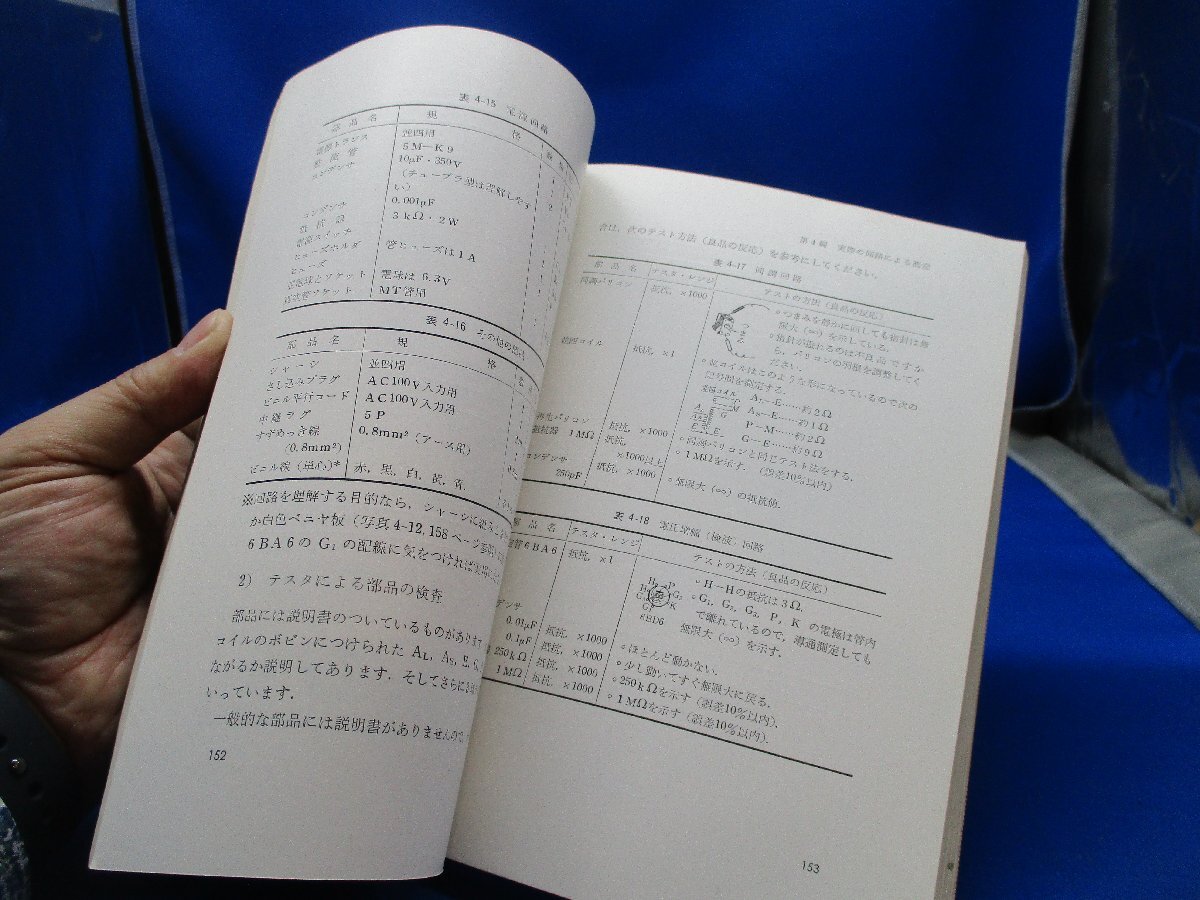 表 4-15 定流回路
部品名 規格
並四用
整流管 5M—K9
コンデンサ 10μF・350V
(チューブラ型は理解しやす
い)
コンデンサ 0.001μF
抵抗器 3kΩ・2W
電源スイッチ
ヒューズホルダ 管ヒューズは1A
ヒューズ
電球は 6.3V
MT管用
表 4-16 その他の部品
部品名 規格
シャーシ 並四用
さし込みプラグ AC100V入力用
ビニル平行コード AC100V入力用
中継ラグ 5P
すずめっき線 0.8mm²(アース用)
(0.8mm²)
ビニル線(単心)* 赤, 黒, 白, 黄, 青
※回路を理解する目的なら, シャーシに
か白色ベニヤ板(写真4-12, 158ページ
6BA6のG₁の配線に気をつければ
2) テスタによる部品の検査
部品には説明書のついているものがあります
コイルのボビンにつけられた AL, As, E, G,
ながるか説明してあります. そしてさらに
いっています.
一般的な部品には説明書がありませんので
152
第4編 実際の回路による製作
合は, 次のテスト方法(良品の反応)を参考にしてください.
表 4-17 同調回路
部品名 テスタ・レンジ テストの方法(良品の反応)
同調バリコン 抵抗, ×1000
つまみ
○つまみを静かに回しても指針は無
限大(∞)を示している.
○指針が振れるのは不良品ですか
ら, バリコンの羽根を調整してく
ださい.
並四コイル 抵抗, ×1
○並コイルはこのような形になっているので次の
記号間を測定する.
AL—E……約2Ω
As—E……約1Ω
P—M……約2Ω
G—E……約9Ω
再生バリコン 抵抗, ×1000 ○同調バリコンと同じテスト法をする.
抵抗器 1MΩ 抵抗, ×1000以上 ○1MΩを示す. (誤差10%以内)
コンデンサ
250pF 抵抗, ×1000 ○無限大(∞)の抵抗値.
表 4-18 電圧増幅(検波)回路
部品名 テスタ・レンジ テストの方法(良品の反応)
管6BA6 抵抗, ×1
6BD6
○H—Hの抵抗は3Ω.
○G₁, G₂, G₃, P, K の電極は管内
で離れているので, 導通測定しても
無限大(∞)を示す.
デンサ
0.01μF 抵抗, ×1000 ○ほとんど動かない.
0.1μF 抵抗, ×1000 ○少し動いてすぐ無限大に戻る.
250kΩ 抵抗, ×1000 ○250kΩを示す(誤差10%以内).
1MΩ 抵抗, ×1000 ○1MΩを示す(誤差10%以内).
153